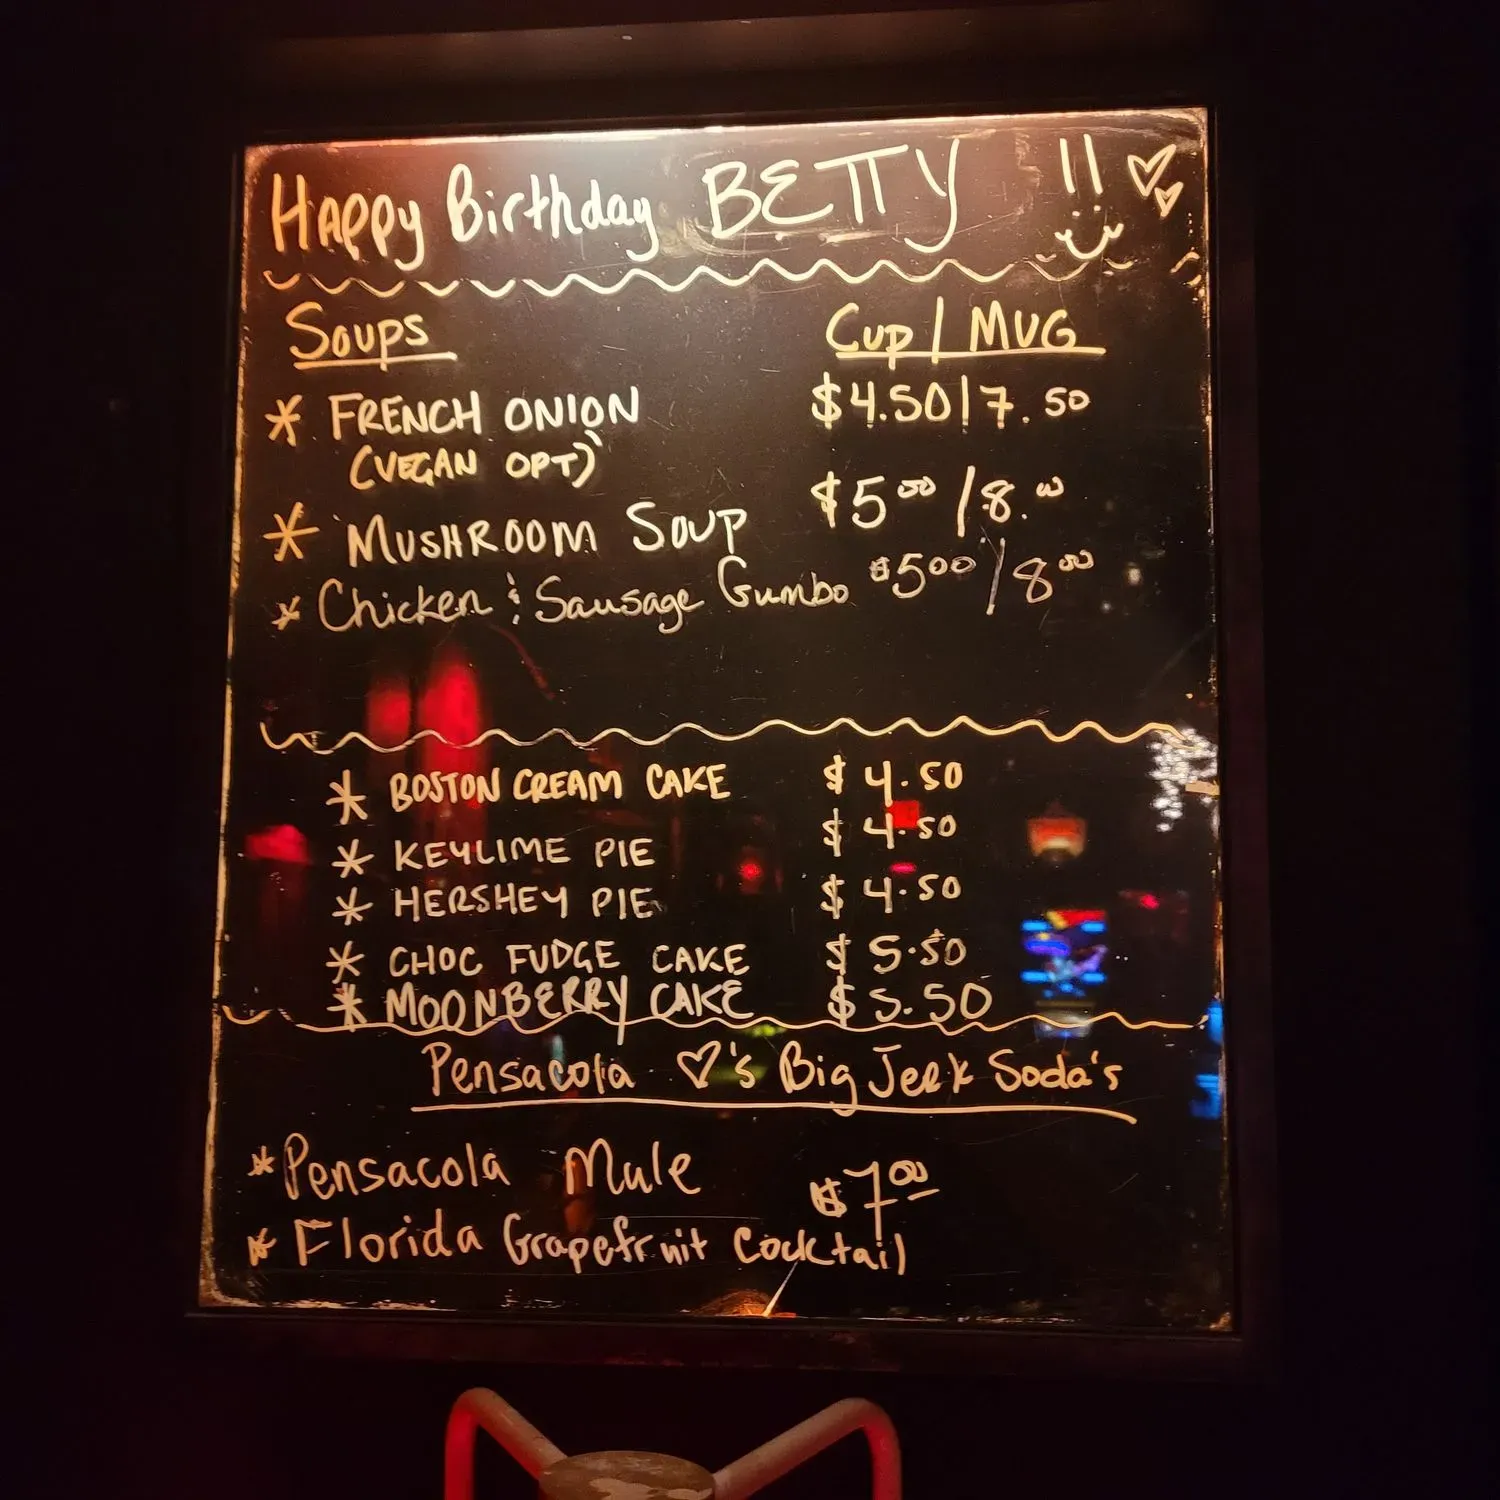 Happy Birthday BETTY !!
Soups Cup / MUG
* FRENCH ONION $4.50 / 7.50
(VEGAN OPT)
* MUSHROOM SOUP $5.00 / 8.00
* Chicken & Sausage Gumbo $5.00 / 8.00
* BOSTON CREAM CAKE $4.50
* KEYLIME PIE $4.50
* HERSHEY PIE $4.50
* CHOC FUDGE CAKE $5.50
* MOONBERRY CAKE $5.50
Pensacola ♡'s Big Jerk Soda's
* Pensacola Mule $7.00
* Florida Grapefruit Cocktail